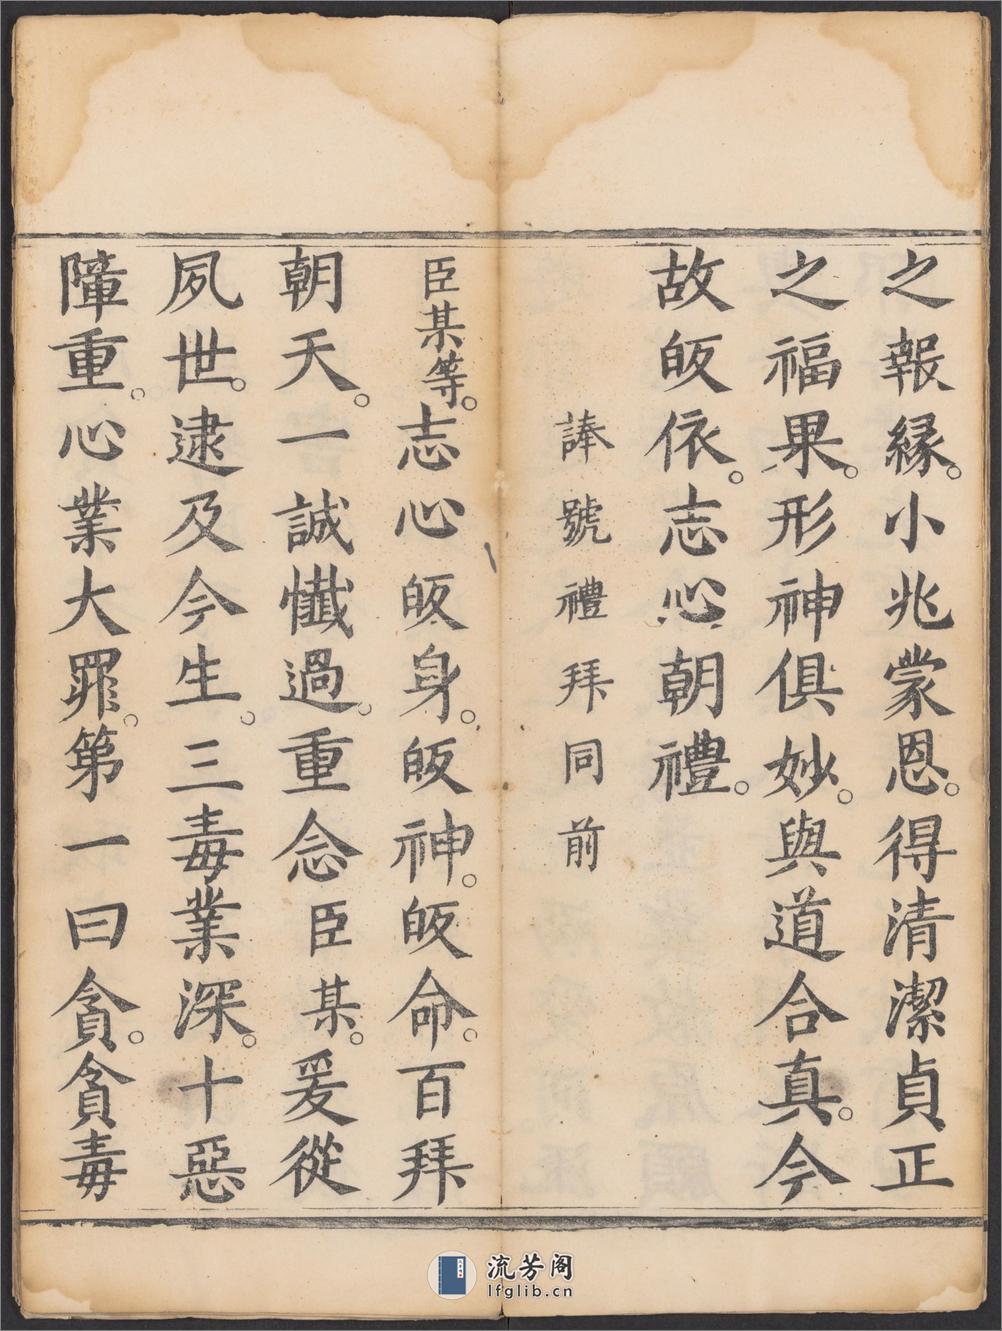 之報緣。小兆蒙恩。得清潔貞正
之福果。形神俱妙。與道合真。今
故皈依。志心朝禮。
諱號禮拜同前
臣某等。志心皈身。皈神。皈命。百拜
朝天。一誠懺過。重念臣某。爰從
夙世。逮及今生。三毒業深。十惡
障重。心業大罪。第一曰貪。貪毒
流芳阁
lfglib.cn